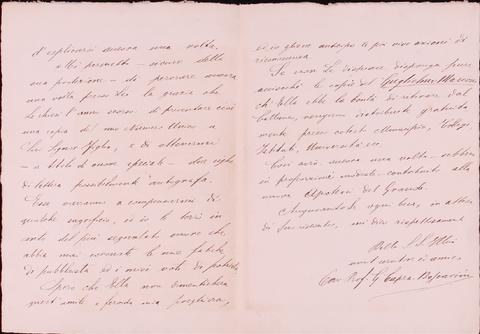 d'esplicarsi ancora una volta.
Mi permetto - sicuro della
sua protezione - di pregare ancora
una volta presso Lei la grazia che
Le chiesi l'anno scorso: di presentare cioè
una copia del mio Numero Unico a
Suo Signor Figlio, e di ottenermi
- a titolo di onore speciale - due righe
di lettera possibilmente autografa.
Esse varranno a compensarmi di
qualche sacrificio, ed io le terrò in
conto del più segnalato onore che
abbia mai coronate le mie fatiche
di pubblicista ed i miei voti di patriota.
Spero che Ella non dimenticherà
quest'umile e fervida mia preghiera,
ed io gliene anticipo le più vive azioni di
riconoscenza.
Se crede Le dispiace disponga pure
acciocchè le copie del Guglielmo Marconi
ch'Ella ebbe la bontà di ritirare dal
vengano distribuite gratuita-
mente presso cotesti Municipio, Collegi,
Istituti, Università ecc.
Così avrò ancora una volta - sebbene
in proporzioni modeste - contribuito alla
nuova Apoteosi del Grande.
Augurandole ogni bene, in attesa
di Suo riscontro, mi dico rispettosamente
Della S.V. Ill.ma
Cav. Prof. G. Capra Boscarini